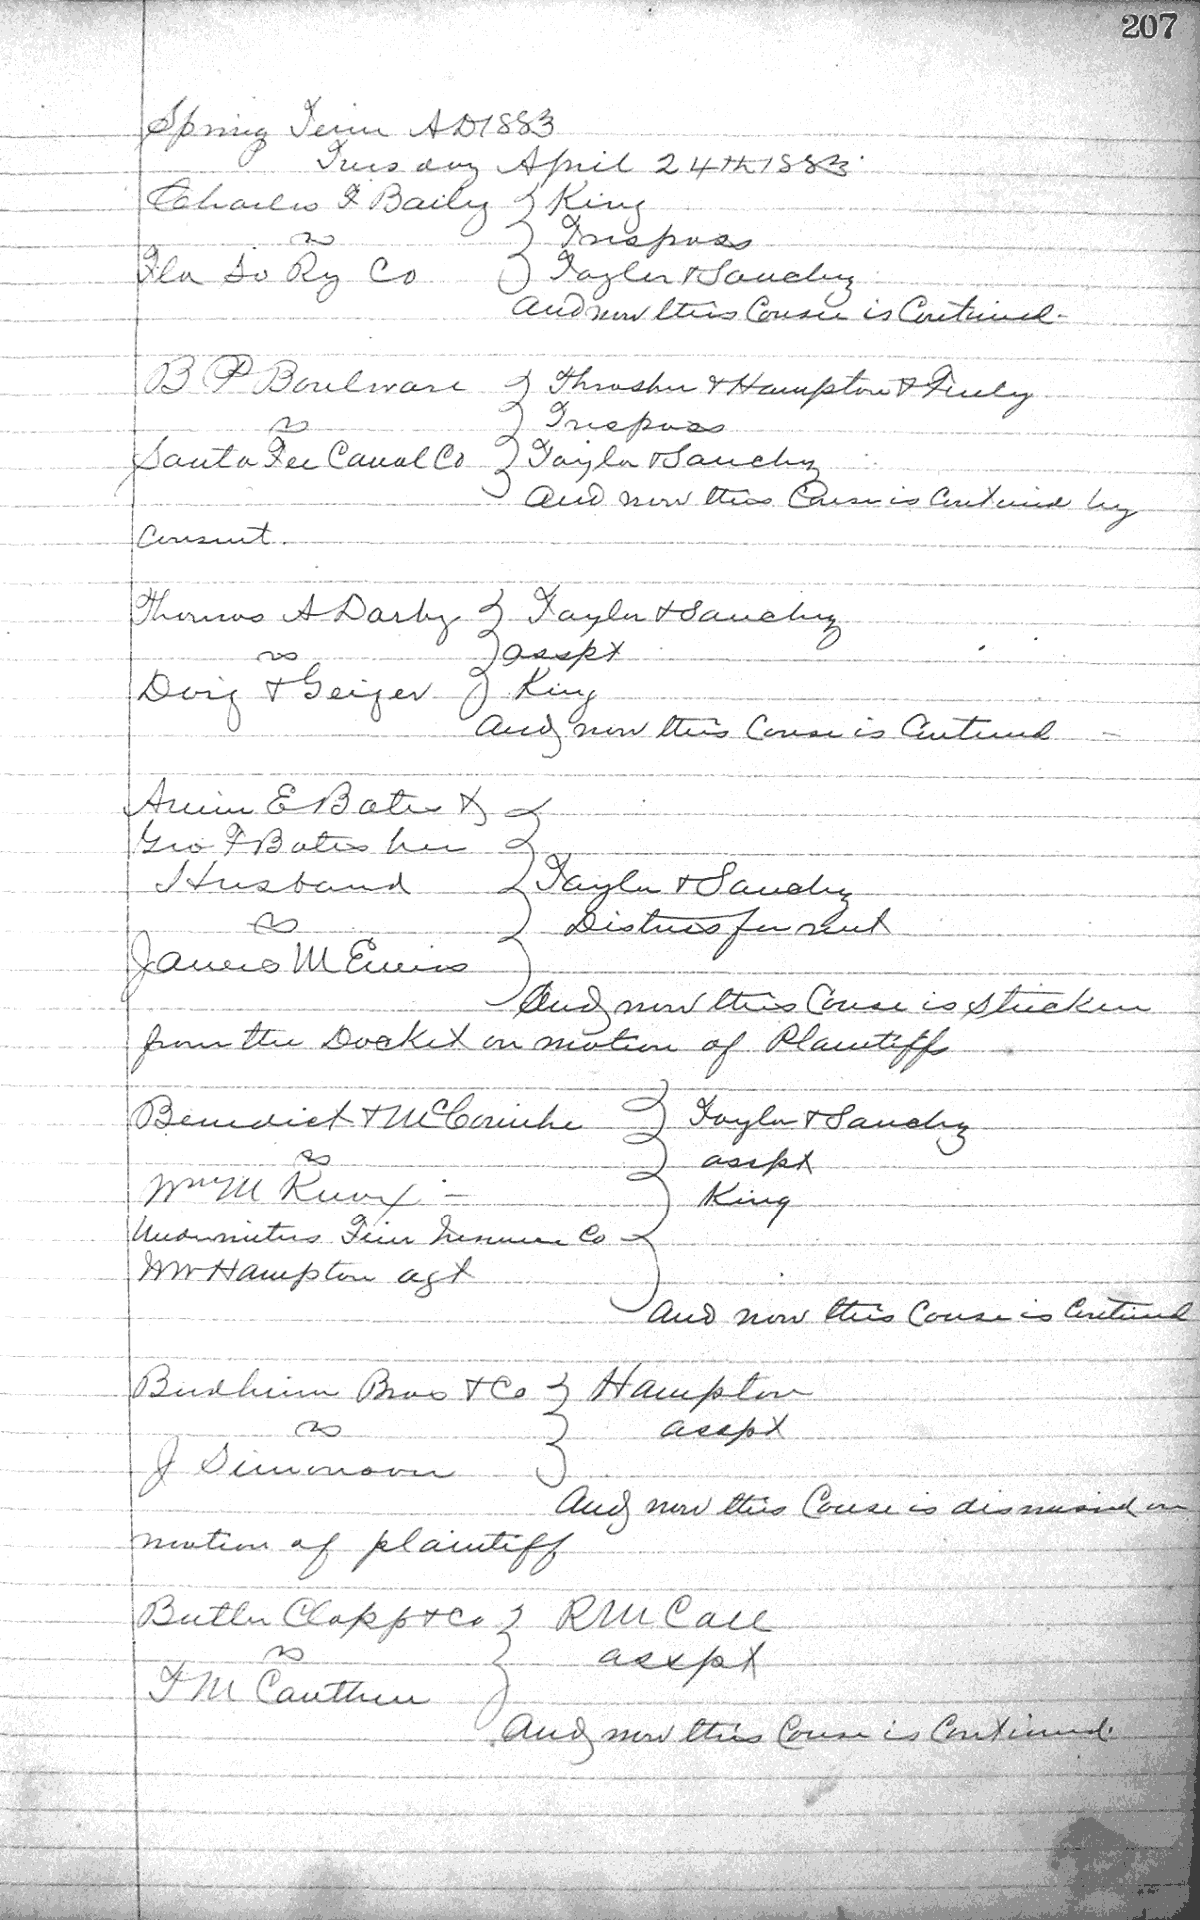 207
Spring Term AD 1883
Tuesday April 24th 1883
Charles F Baily } King
vs } Trespass
Fla So Ry Co } Taylor & Sanchez
And now this Cause is Continued.
B P Boulware } Thrasher & Hampton & Finley
vs } Trespass
Santa Fee Canal Co } Taylor & Sanchez
And now this Cause is Continued by
Consent.
Thomas A Darby } Taylor & Sanchez
vs } asspt
Doig & Geiger } King
And now this Cause is Continued
Annie E Bates &
Geo F Bates her
Husband } Taylor & Sanchez
vs Distress for rent
James M
And now this Cause is Stricken
from the Docket on motion of Plaintiff
Benedict & } Taylor & Sanchez
vs } asspt
Wm M Knox } King
Underwriters Fire Insurance Co
WW Hampton agt
And now this Cause is Continued
Bros & Co } Hampton
vs } asspt
J Simonson
And now this Cause is dismissed on
motion of plaintiff
Butler Clapp & Co } R McCall
vs } asspt
F M Cauthen
And now this Cause is Continued.